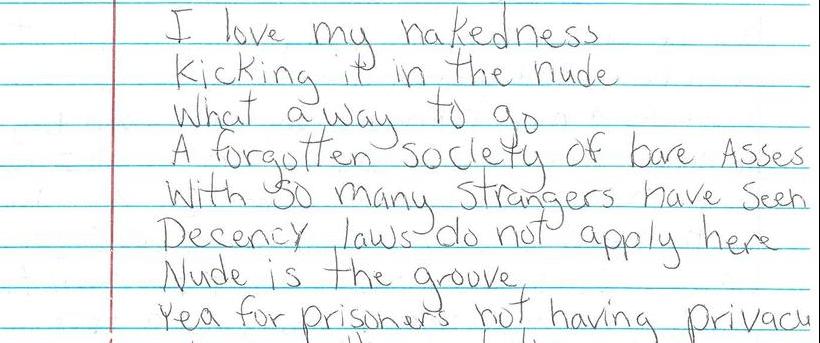 I love my nakedness
Kicking it in the nude
What a way to go
A forgotten society of bare Asses
With so many strangers have seen
Decency laws do not apply here
Nude is the groove
Yea for prisoners not having privacy